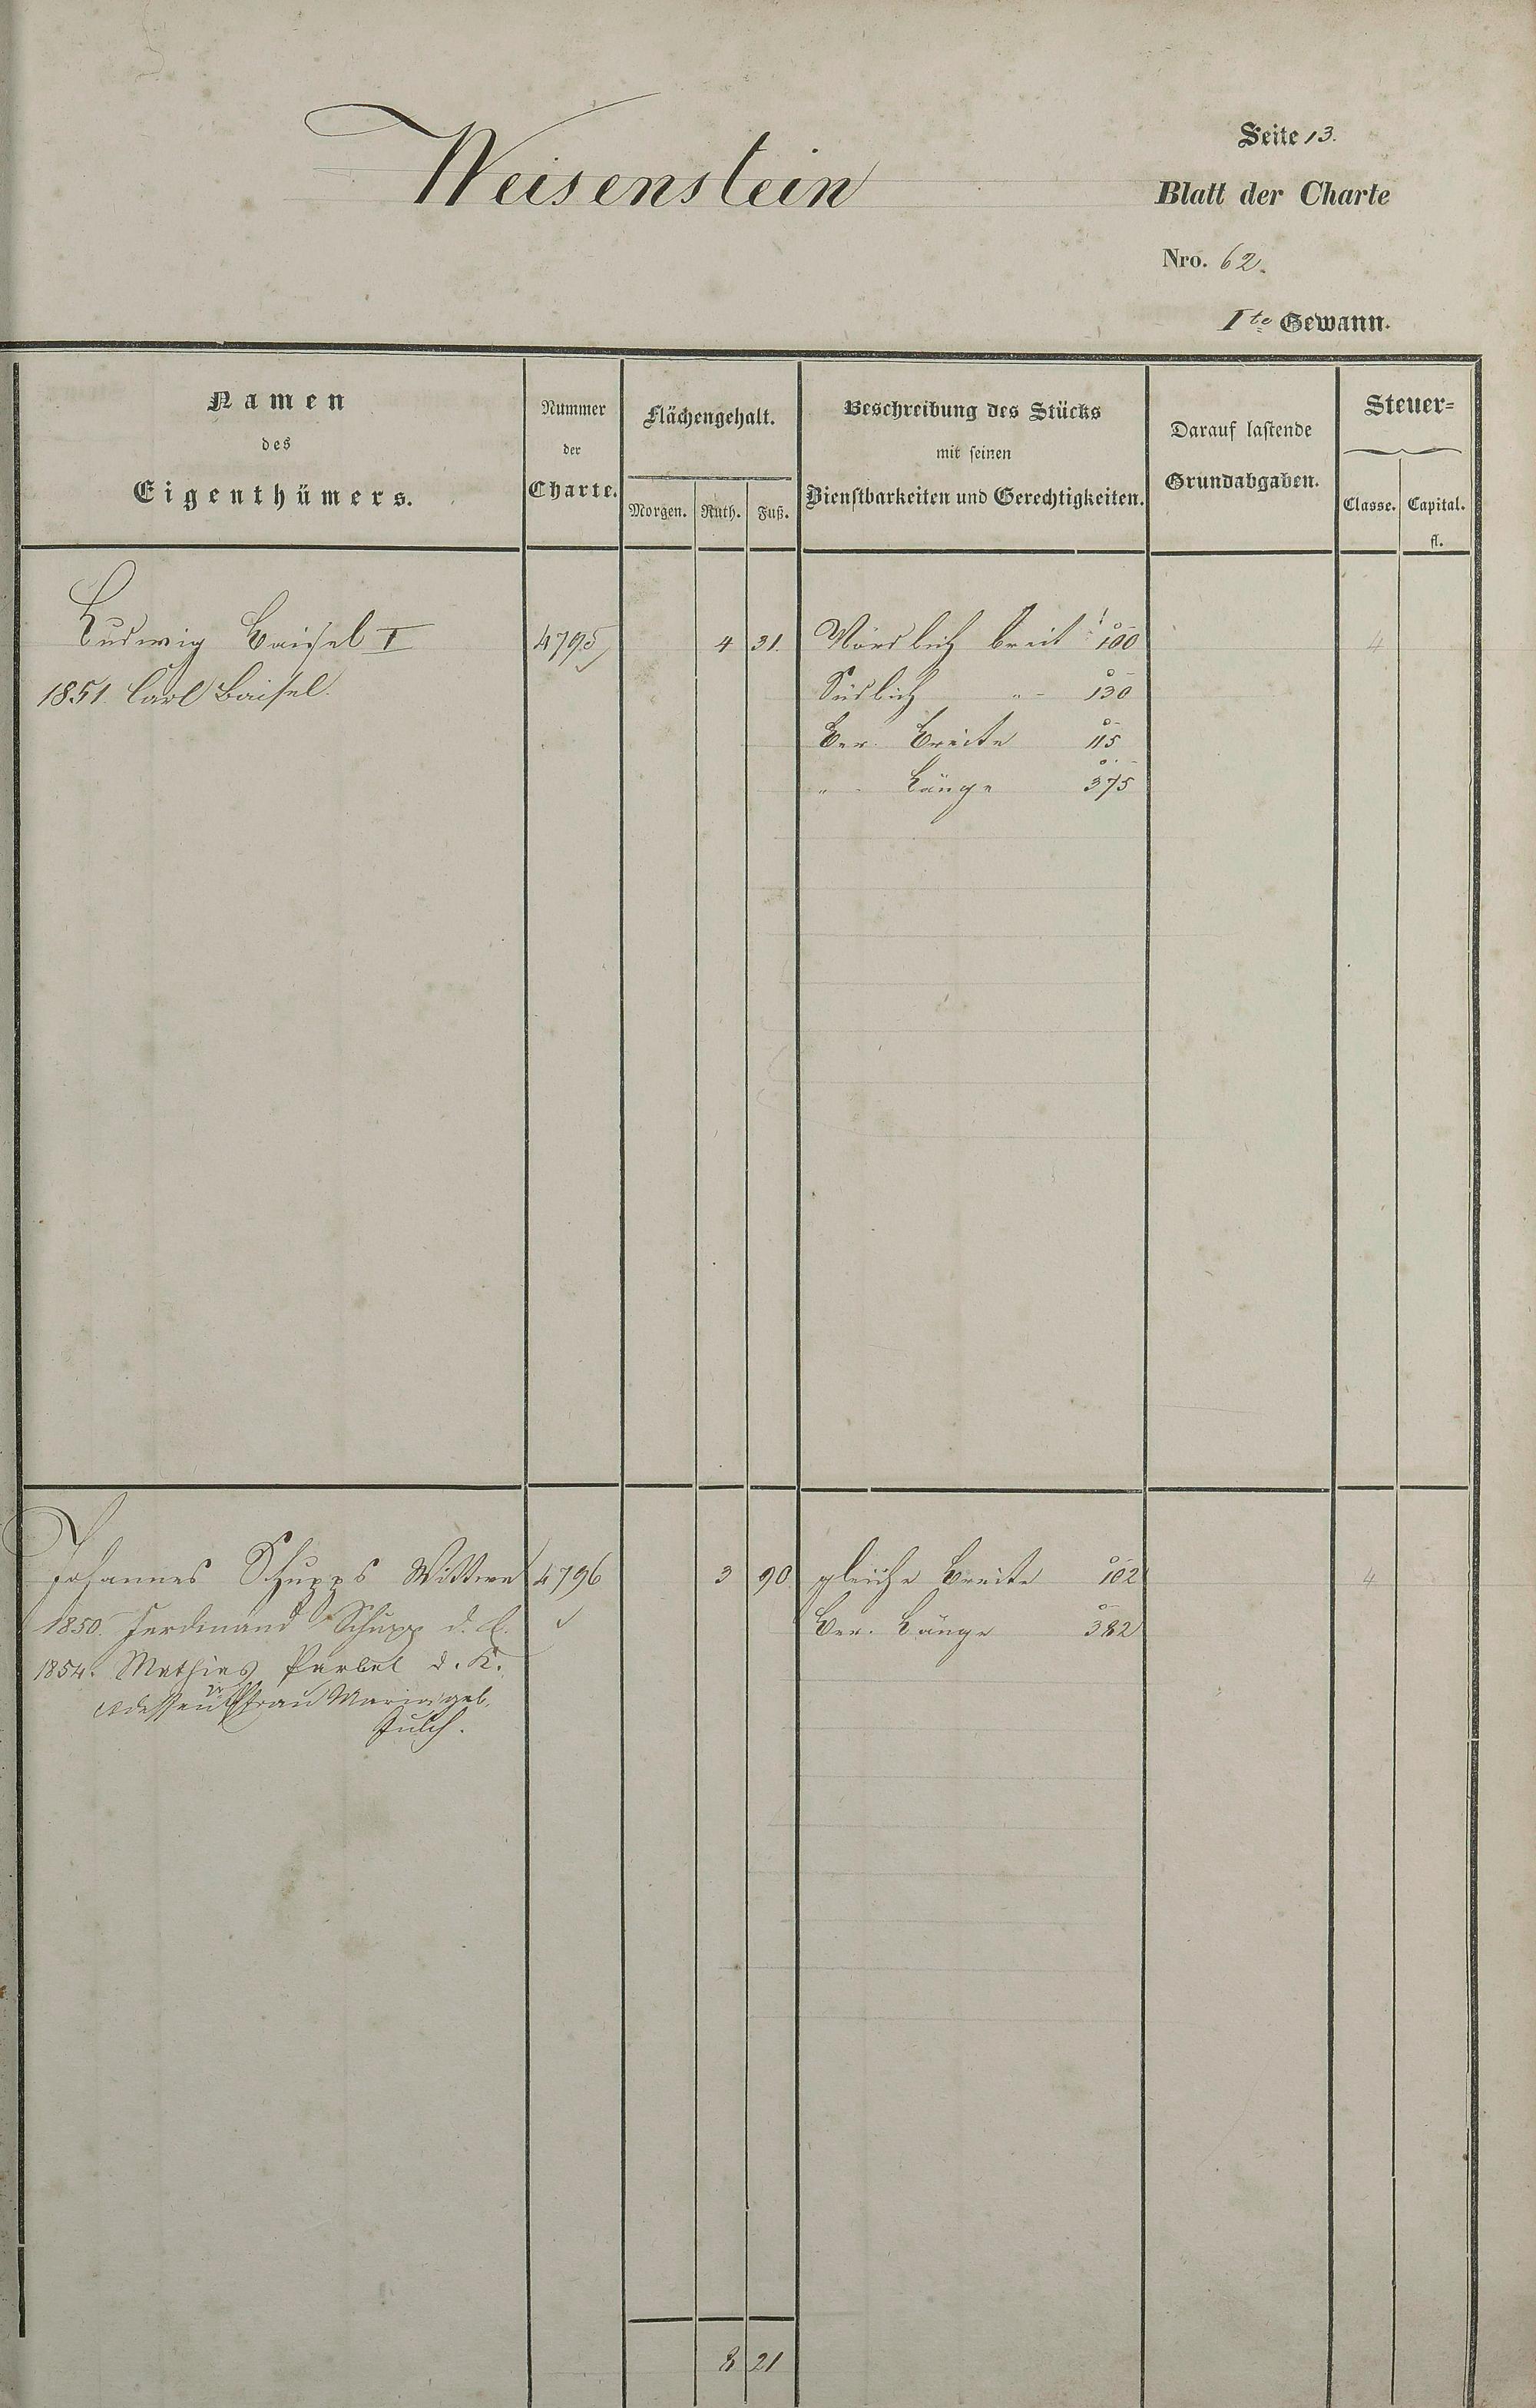 Weisenstein
Seite 13.
Blatt der Charte
Nro. 62.
I te Gewann.
Namen
des
Eigenthümers.
Nummer
der
Charte.
Flächengehalt.
Morgen. Ruth. Fuß.
Beschreibung des Stücks
mit seinen
Dienstbarkeiten und Gerechtigkeiten.
Darauf lastende
Grundabgaben.
Steuer=
Classe. Capital.
fl.
Ludwig Baisel I 4795 4 31. Nördlich breit 100 4
1851. Carl Baisel. Südlich " 130
Ber. Breite 115
" Länge 375
Johannes Schupps Wittwe 4796 3 90 gleiche Breite 102 4
1850. Ferdinand Schupp d. Ber. Länge 382
1854. Mathias Parbel d. K.
dessen Frau Maria geb.
8 21